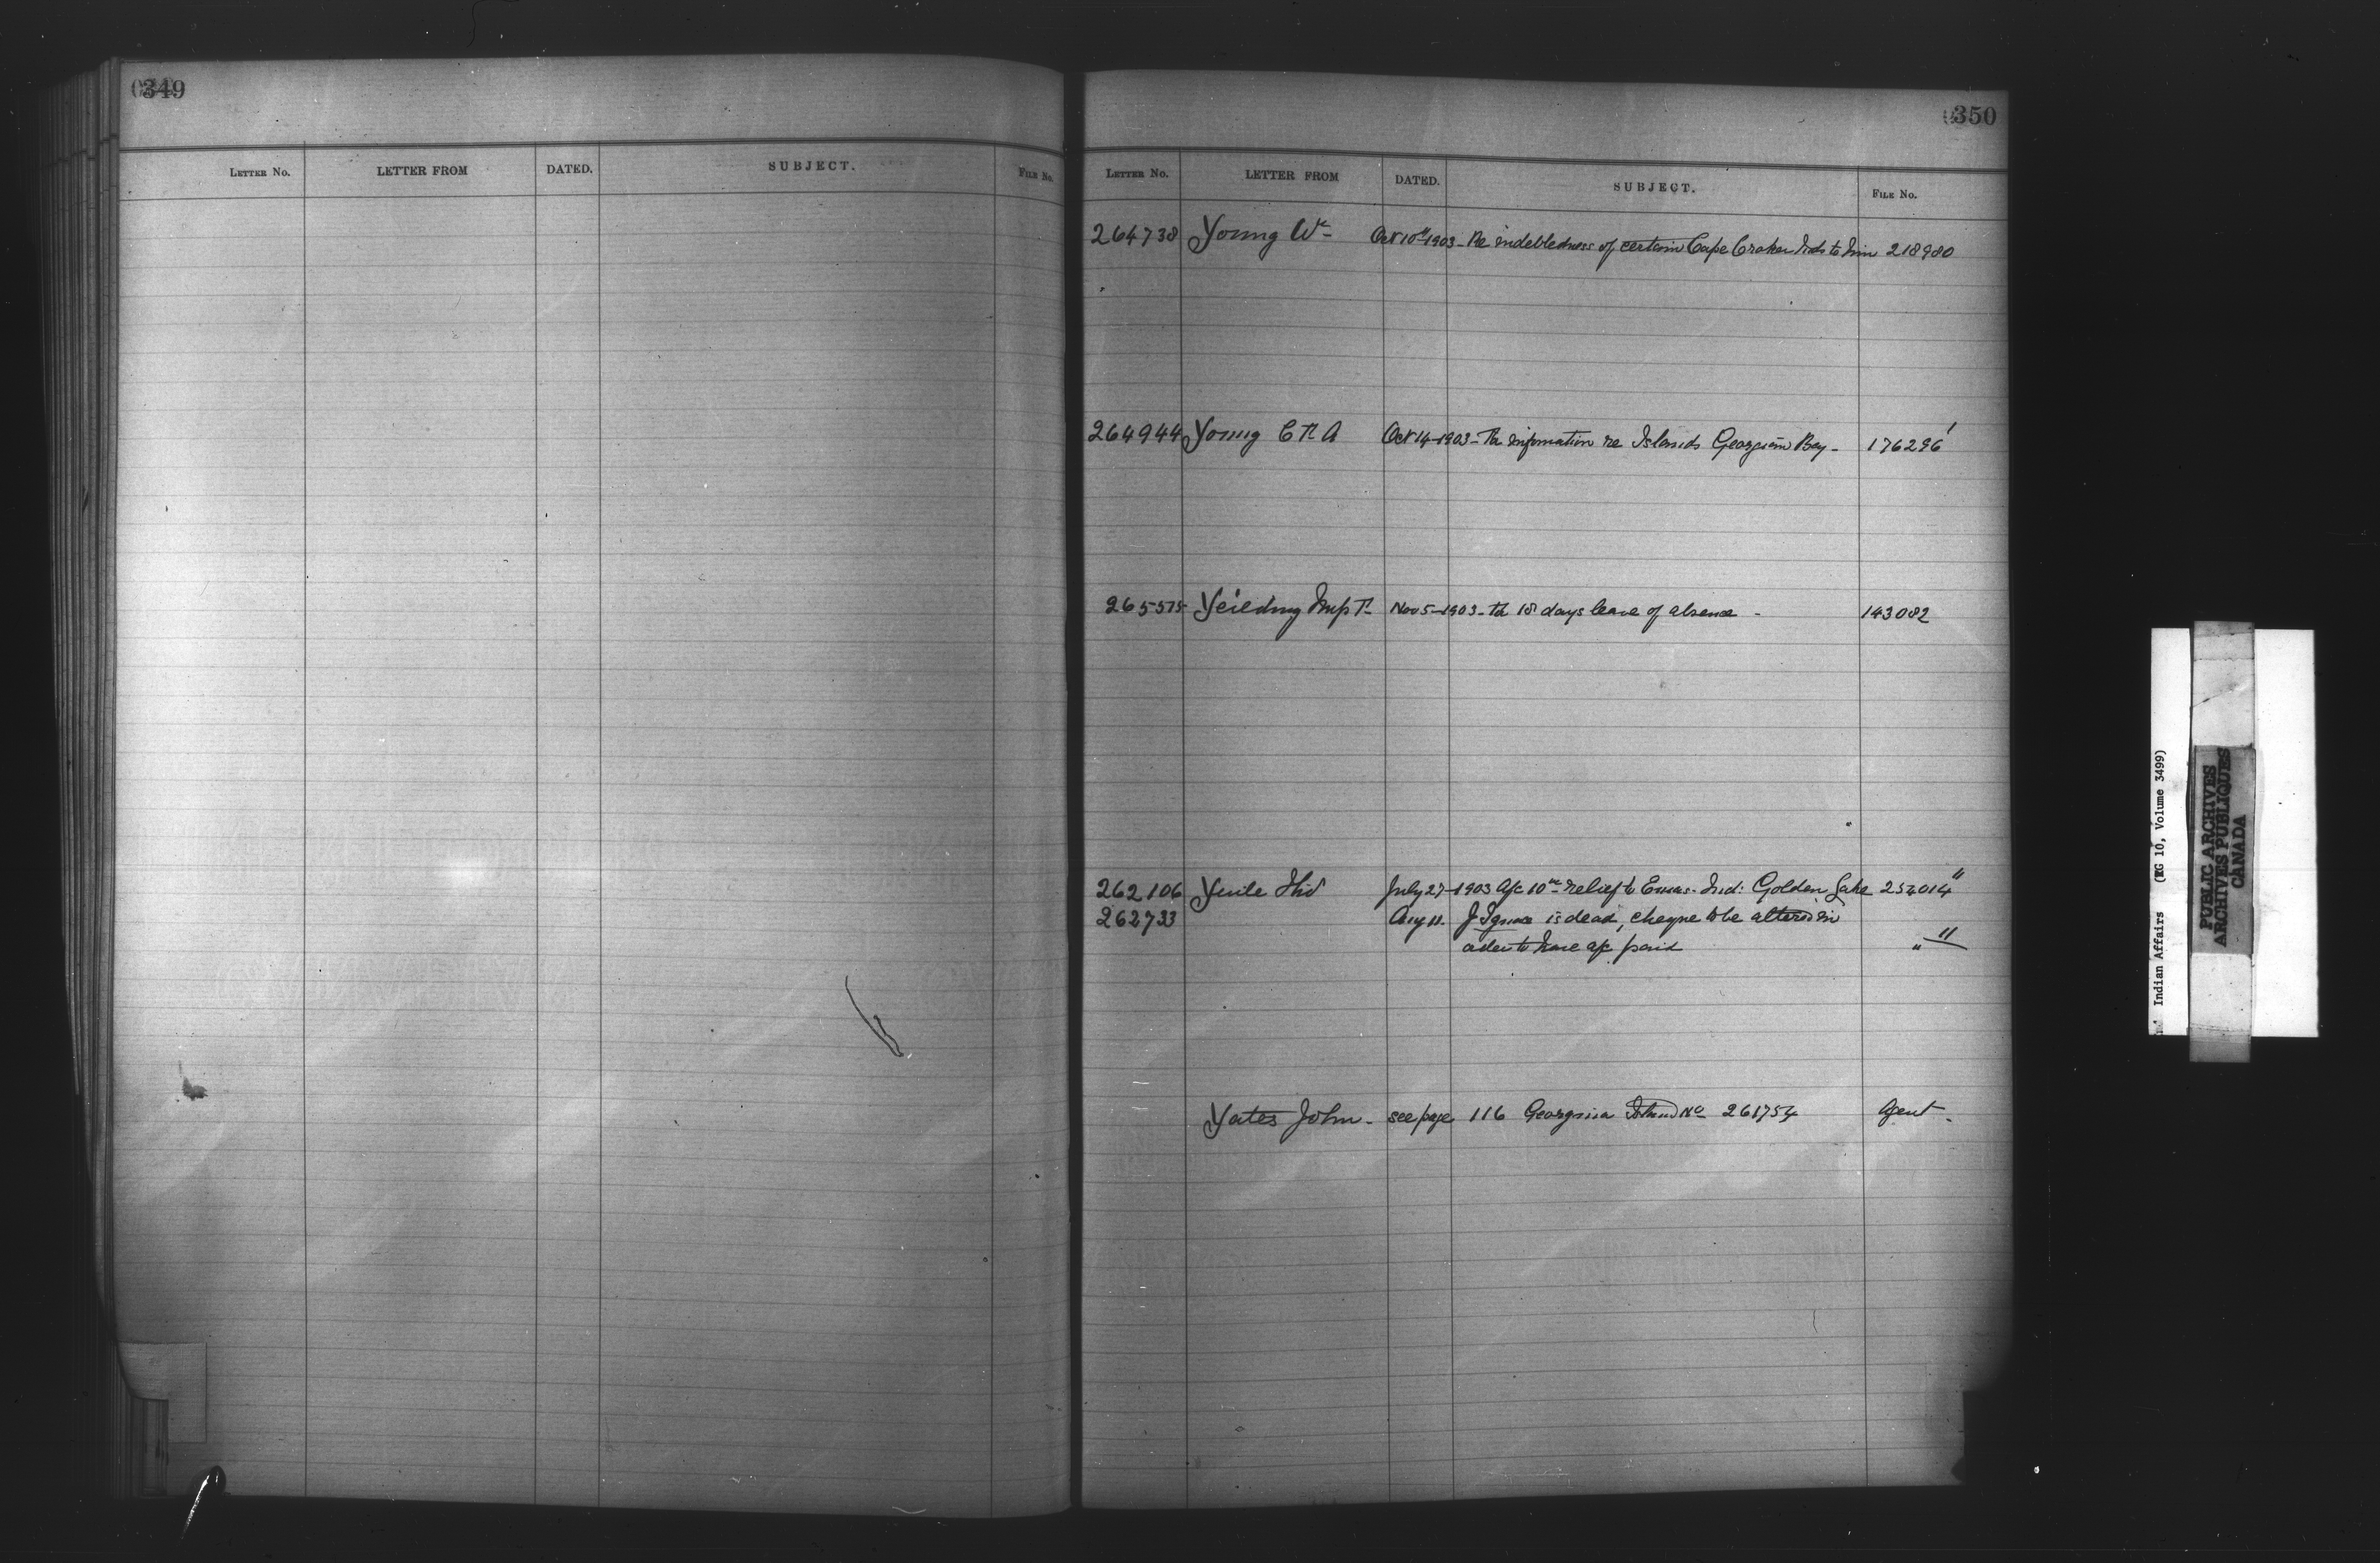 349
LETTER NO. LETTER FROM DATED. SUBJECT. FILE No.
350
LETTER NO. LETTER FROM DATED. SUBJECT. FILE No.
264738 Young Wm Oct 10th 1903 - Re indebtedness of certain Cape Croker Inds to him 218980
264944 Young C R A Oct 14 - 1903 - For information re Islands Georgian Bay - 176296
265575 Yeilding Miss Nov 5 - 1903 - For 18 days leave of absence - 143082
262106 Yuile July 27 - 1903 A/c 10 relief to Ind: Golden Lake 252014 "
262733 Aug 11. J Ignace is dead, cheque to be altered in
order to have a/c paid " "
Yates John - see page 116 Georgina Island No 261754 Agent -
Indian Affairs (RG 10, Volume 3499)
PUBLIC ARCHIVES
ARCHIVES PUBLIQUES
CANADA